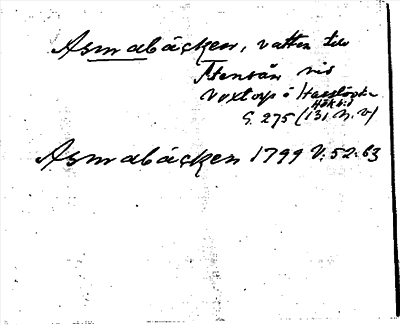 Asmabäcken, vatten till
Stensån vid
Voxtorp i Hasslöv
Hök hd
G. 275 (131, N.V)
Asmabäcken 1799 V:52.63